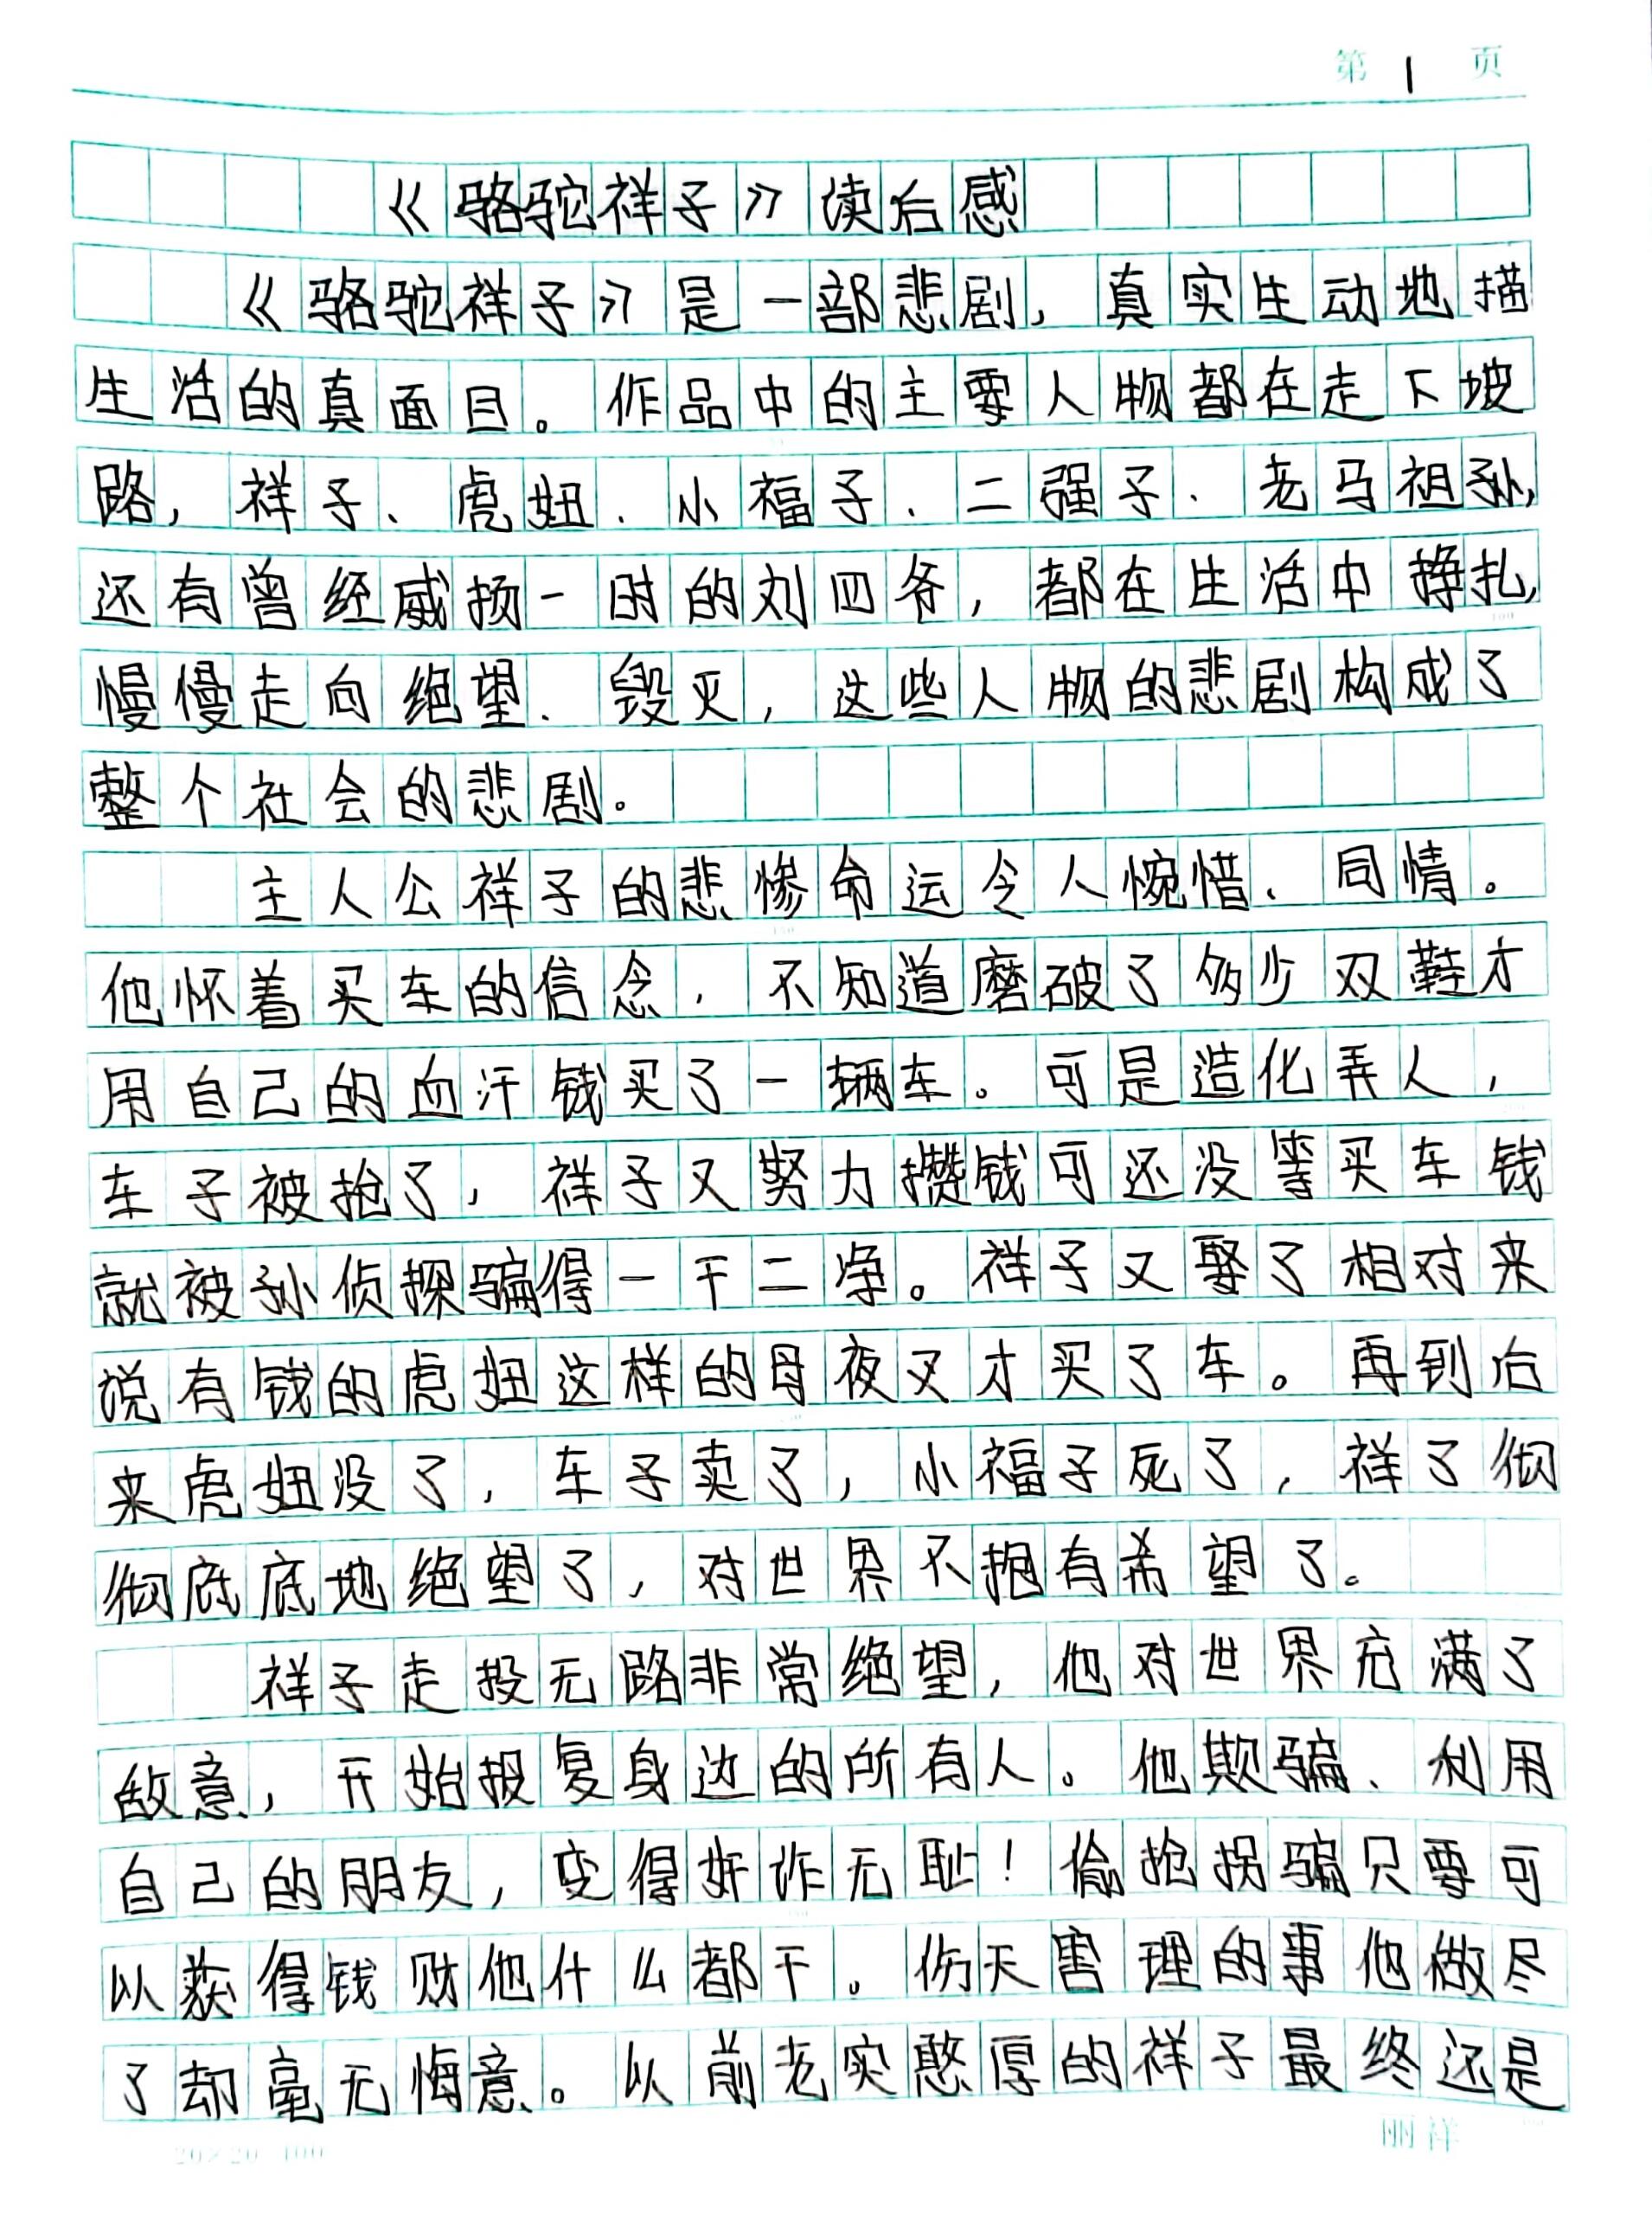 第 1 页
《骆驼祥子》读后感
《骆驼祥子》是一部悲剧，真实生动地描
生活的真面目。作品中的主要人物都在走下坡
路，祥子、虎妞、小福子、二强子、老马祖孙，
还有曾经威扬一时的刘四爷，都在生活中挣扎，
慢慢走向绝望、毁灭，这些人物的悲剧构成了
整个社会的悲剧。
主人公祥子的悲惨命运令人惋惜、同情。
他怀着买车的信念，不知道磨破了多少双鞋才
用自己的血汗钱买了一辆车。可是造化弄人，
车子被抢了，祥子又努力攒钱可还没等买车钱
就被孙侦探骗得一干二净。祥子又娶了相对来
说有钱的虎妞这样的母夜叉才买了车。再到后
来虎妞没了，车子卖了，小福子死了，祥了彻
彻底底地绝望了，对世界不抱有希望了。
祥子走投无路非常绝望，他对世界充满了
敌意，开始报复身边的所有人。他欺骗、利用
自己的朋友，变得奸诈无耻！偷抢拐骗只要可
以获得钱财他什么都干。伤天害理的事他做尽
了却毫无悔意。以前老实憨厚的祥子最终还是
20×20=400
丽祥